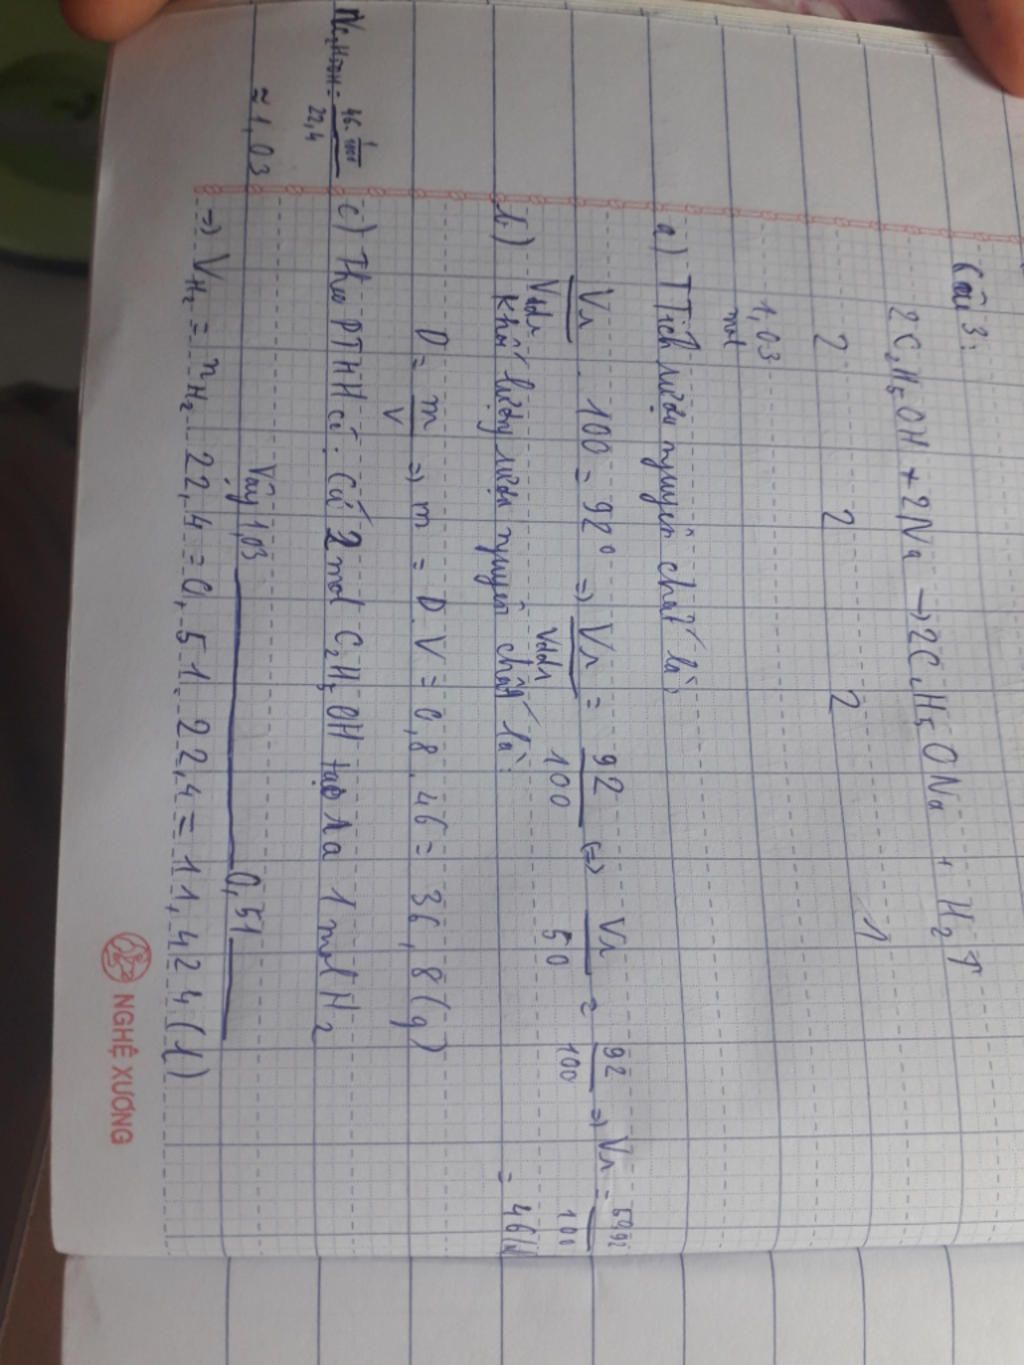 Câu 3:
2C₂H₅OH + 2Na → 2C₂H₅ONa + H₂↑
2 2 2 1
1,03
mol
a) T Tích rượu nguyên chất là:
Vr/Vddr . 100 = 92° => Vr/Vddr = 92/100 (=) Vr/50 = 92/100 => Vr = 50.92/100
= 46(
b) Khối lượng rượu nguyên chất là:
D = m/V => m = D.V = 0,8.46 = 36,8(g)
c) Theo PTHH có: Cứ 2 mol C₂H₅OH tạo ra 1 mol H₂
NC₂H₅OH = 46.1/1000/22,4
≈ 1,03
Vậy 1,03 0,51
=> VH₂ = nH₂.22,4 = 0,51.22,4 = 11,424(l)
NGHỆ XƯƠNG